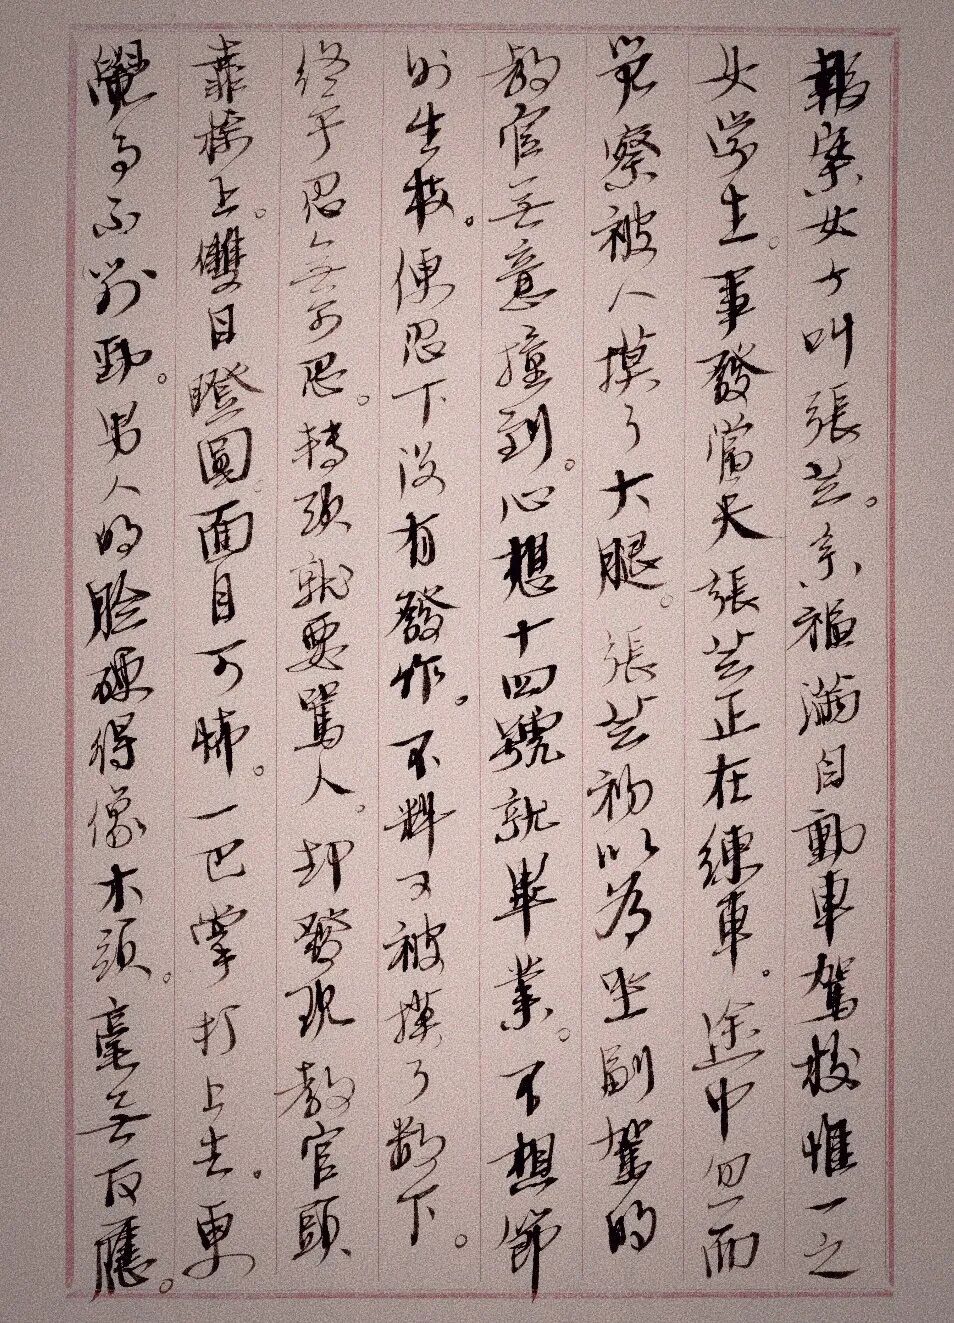 報案女子叫張芸。系福滿自動車駕校惟一之
女學生。事發當天張芸正在練車。途中忽而
覺察被人摸了大腿。張芸初以為坐副駕的
教官無意撞到。心想十四號就畢業。不想節
外生枝。便忍下沒有發作。不料又被摸了數下。
終于忍無可忍。轉頭就要罵人。却發現教官頭
靠椅上。雙目瞪圓。面目可怖。一巴掌打上去。更
覺得不對勁。男人的臉硬得像木頭。毫無反應。